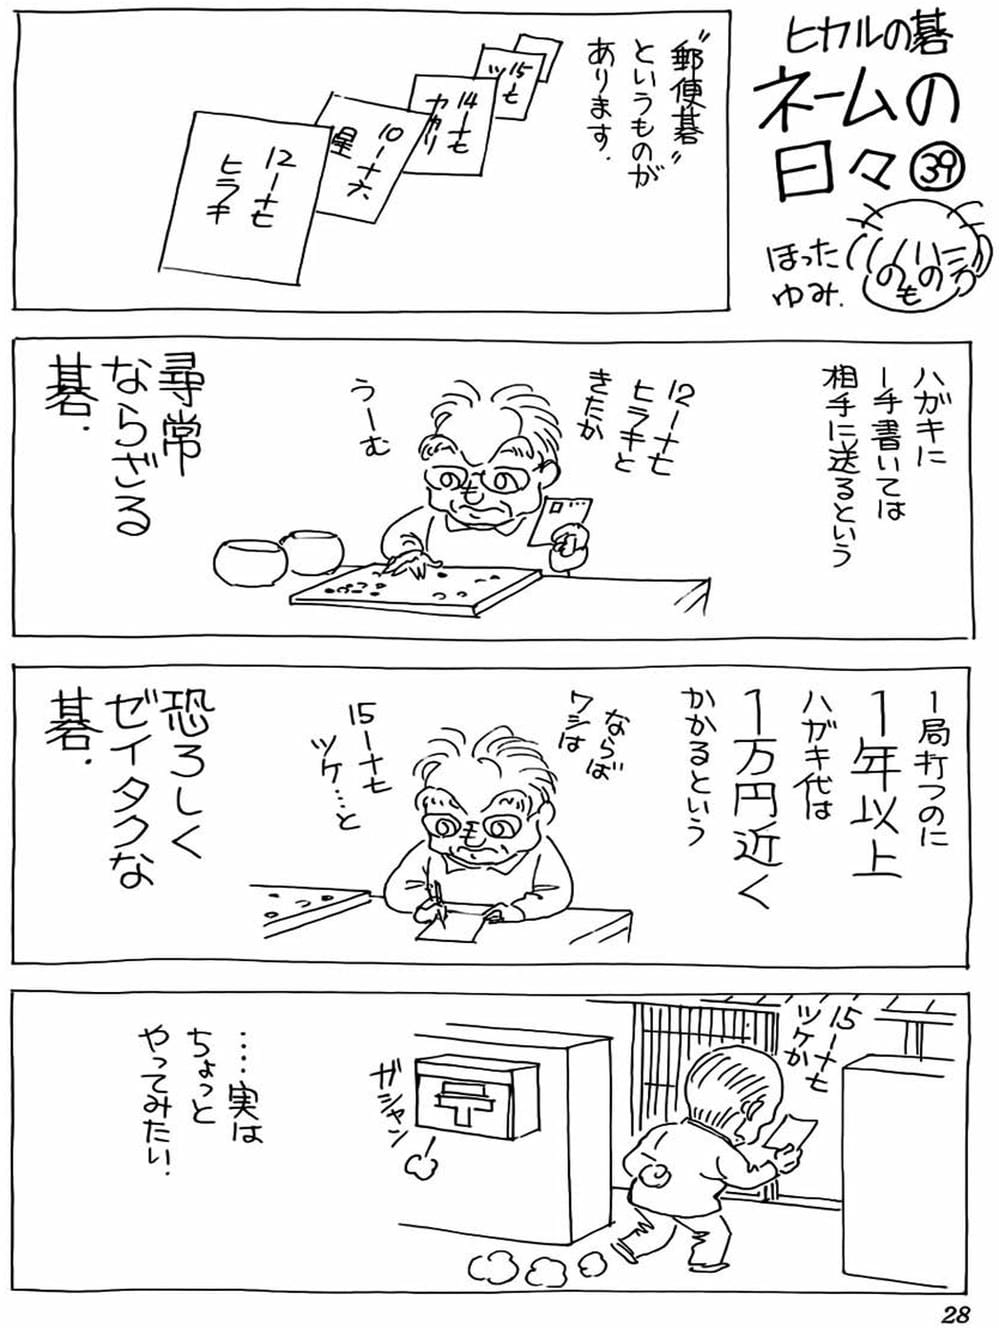 ヒカルの碁
ネームの
日々㊴
ほった
ゆみ.
〃郵便碁〃
というものが
あります.
15一七
ツ
14一十七
カカリ
10一十六
星
12一十七
ヒラキ
ハガキに
1手書いては
相手に送るという
12一十七
ヒラキと
きたか
うーむ
尋常
ならざる
碁.
1局打つのに
1年以上
ハガキ代は
1万円近く
かかるという
ならば
ワシは
15一十七
ツケ…と
恐ろしく
ゼイタクな
碁.
15一十七
ツケか
ガシャン
〒
…実は
ちょっと
やってみたい.
28